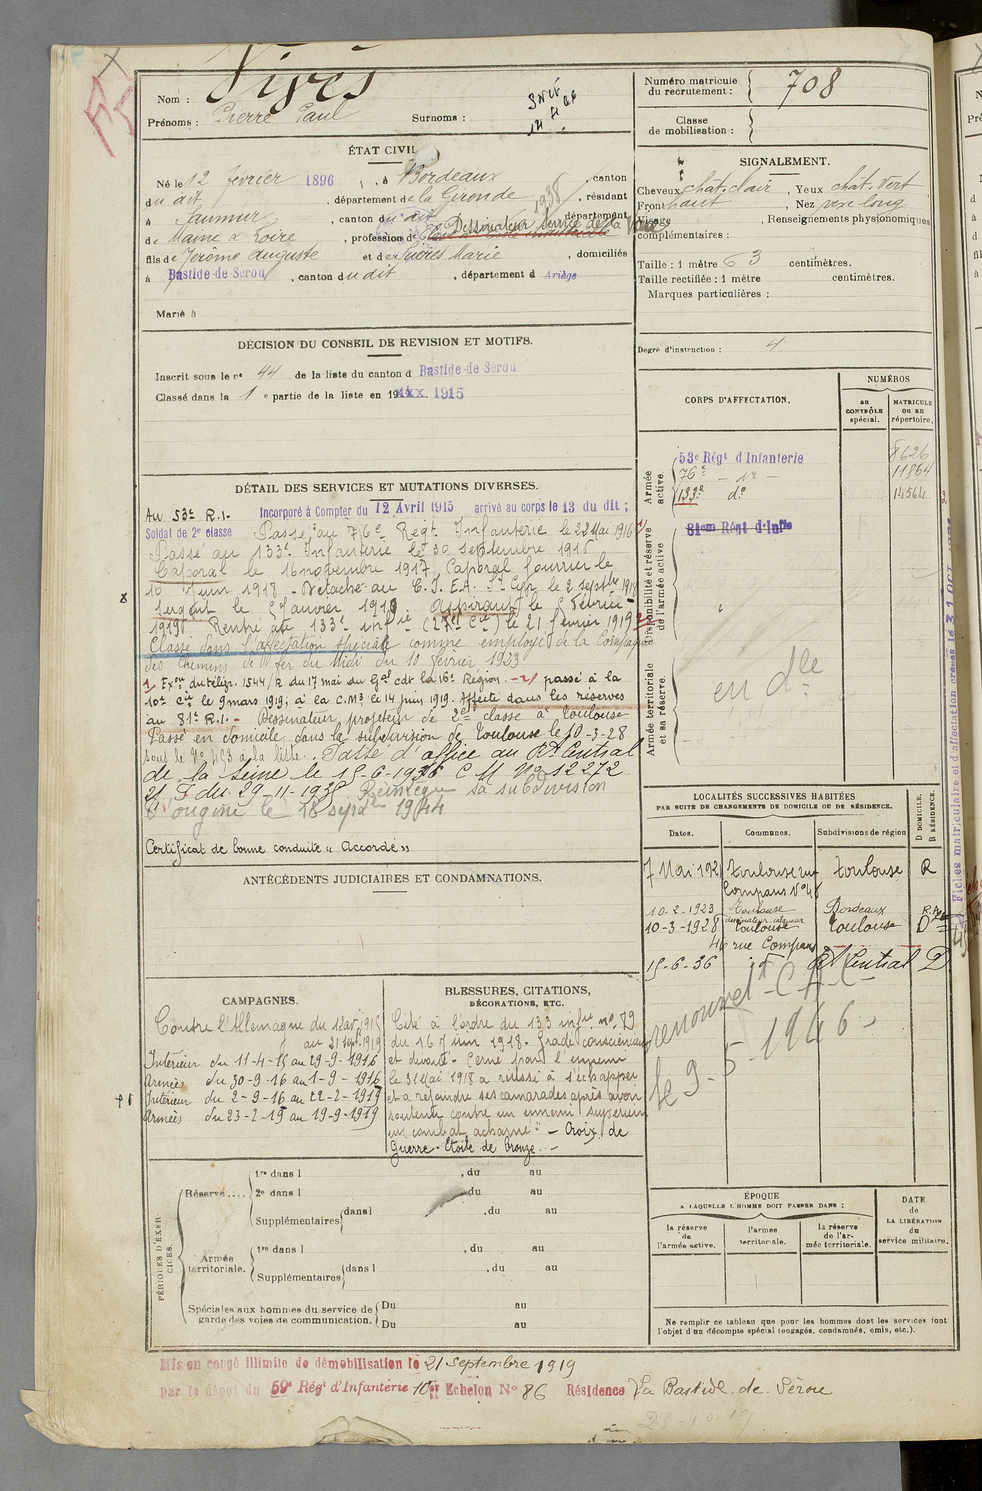 Nom : Vivès
Prénoms : Pierre Paul Surnoms :
Numéro matricule du recrutement : 708
Classe de mobilisation :
ÉTAT CIVIL
Né le 12 février 1896, à Bordeaux, canton
du dit, département de la Gironde, résidant
à Saumur, canton du dit, département
de Maine & Loire, profession de Dessinateur Service de la Voie
fils de Jérôme Auguste et de Marie, domiciliés
à Bastide-de-Sérou, canton du dit, département d Ariège
Marié à
SIGNALEMENT.
Cheveux chât. clair, Yeux chât. vert
Front haut, Nez long
Visage , Renseignements physionomiques
complémentaires :
Taille : 1 mètre 63 centimètres.
Taille rectifiée : 1 mètre centimètres.
Marques particulières :
Degré d'instruction : 4
DÉCISION DU CONSEIL DE REVISION ET MOTIFS.
Inscrit sous le n° 44 de la liste du canton d Bastide-de-Sérou
Classé dans la 1e partie de la liste en 19 1915
CORPS D'AFFECTATION.
NUMÉROS
au CONTRÔLE spécial.
MATRICULE ou au répertoire.
Armée active.
53e Régt d'Infanterie 8626
76e - d° - 11864
133e d° 14564
Disponibilité et réserve de l'armée active
81em Régt d'Infie
Armée territoriale et sa réserve.
en dlle
DÉTAIL DES SERVICES ET MUTATIONS DIVERSES.
Au 53e R.I. Incorporé à Compter du 12 Avril 1915 arrivé au corps le 13 du dit ;
Soldat de 2e classe Passé au 76e Régt Infanterie le 22 Mai 1916
Passé au 133e Infanterie le 30 septembre 1916
Caporal le 16 novembre 1917, Caporal fourrier le
10 juin 1918 - Détaché au C.I.E.A. St Cyr le 2 septbre 1918
Sergent le janvier 1919. Aspirant le février
1919. Rentré au 133e infrie (27e Cie) le 21 février 1919
Classé dans l'affectation spéciale comme employé de la Compagnie
des Chemins de fer du Midi du 10 février 1923
1/ Exon du télégr. 1544/R du 17 mai du Gal cdt la 16e Région. - 2/ passé à la
10e Cie le 9 mars 1919; à la C.M3 le 14 juin 1919. Affecté dans les réserves
au 81e R.I. - Dessinateur projeteur de 2e classe à Toulouse
Passé en domicile dans la subdivision de Toulouse le 10-3-28
sous le N° 493 à la liste. Passé d'office au Rt Central
de la Seine le 15-6-1936 C M N° 12272
du 29-11-1938 Réintégré sa subdivision
d'origine le 18 septbre 1944
Certificat de bonne conduite « Accordé »
LOCALITÉS SUCCESSIVES HABITÉES
PAR SUITE DE CHANGEMENTS DE DOMICILE OU DE RÉSIDENCE.
D DOMICILE. R RÉSIDENCE.
Dates. Communes. Subdivisions de région
7 Mai 192 Toulouse rue Toulouse R
Compans N° 46
10-2-1923 Toulouse Bordeaux
10-3-1928 Toulouse Toulouse D
46 rue Compans
15-6-36 Rt Central D
renouvelt C A C
le 9-5-1946
ANTÉCÉDENTS JUDICIAIRES ET CONDAMNATIONS.
CAMPAGNES.
Contre l'Allemagne du 12 avr 1915
au 21 sept 1919
Intérieur du 11-4-15 au 29-9-1916
Armées du 30-9-16 au 1-9-1916
Intérieur du 2-9-16 au 22-2-1919
Armées du 23-2-19 au 19-9-1919
BLESSURES, CITATIONS,
DÉCORATIONS, ETC.
Cité à l'ordre du 133 infie n° 79
du 16 juin 1918. Gradé consciencieux
et dévoué. Cerné par l'ennemi
le 31 Mai 1918 a réussi à s'échapper
et a rejoindre ses camarades après avoir
soutenu contre un ennemi supérieur
un combat acharné" - Croix de
Guerre. Etoile de Bronze. -
PÉRIODES D'EXERCICES.
Réserve....
1re dans l , du au
2e dans l , du au
Supplémentaires dans l , du au
Armée territoriale.
1re dans l , du au
Supplémentaires dans l , du au
Spéciales aux hommes du service de garde des voies de communication.
Du au
Du au
ÉPOQUE
A LAQUELLE L'HOMME DOIT PASSER DANS :
la réserve de l'armée active.
l'armée territoriale.
la réserve de l'armée territoriale.
DATE de LA LIBÉRATION du service militaire.
Ne remplir ce tableau que pour les hommes dont les services font
l'objet d'un décompte spécial (engagés, condamnés, omis, etc.).
Mis en congé illimité de démobilisation le 21 Septembre 1919
par le dépôt du 59e Régt d'Infanterie 10er Echelon N° 86 Résidence La Bastide de Sérou